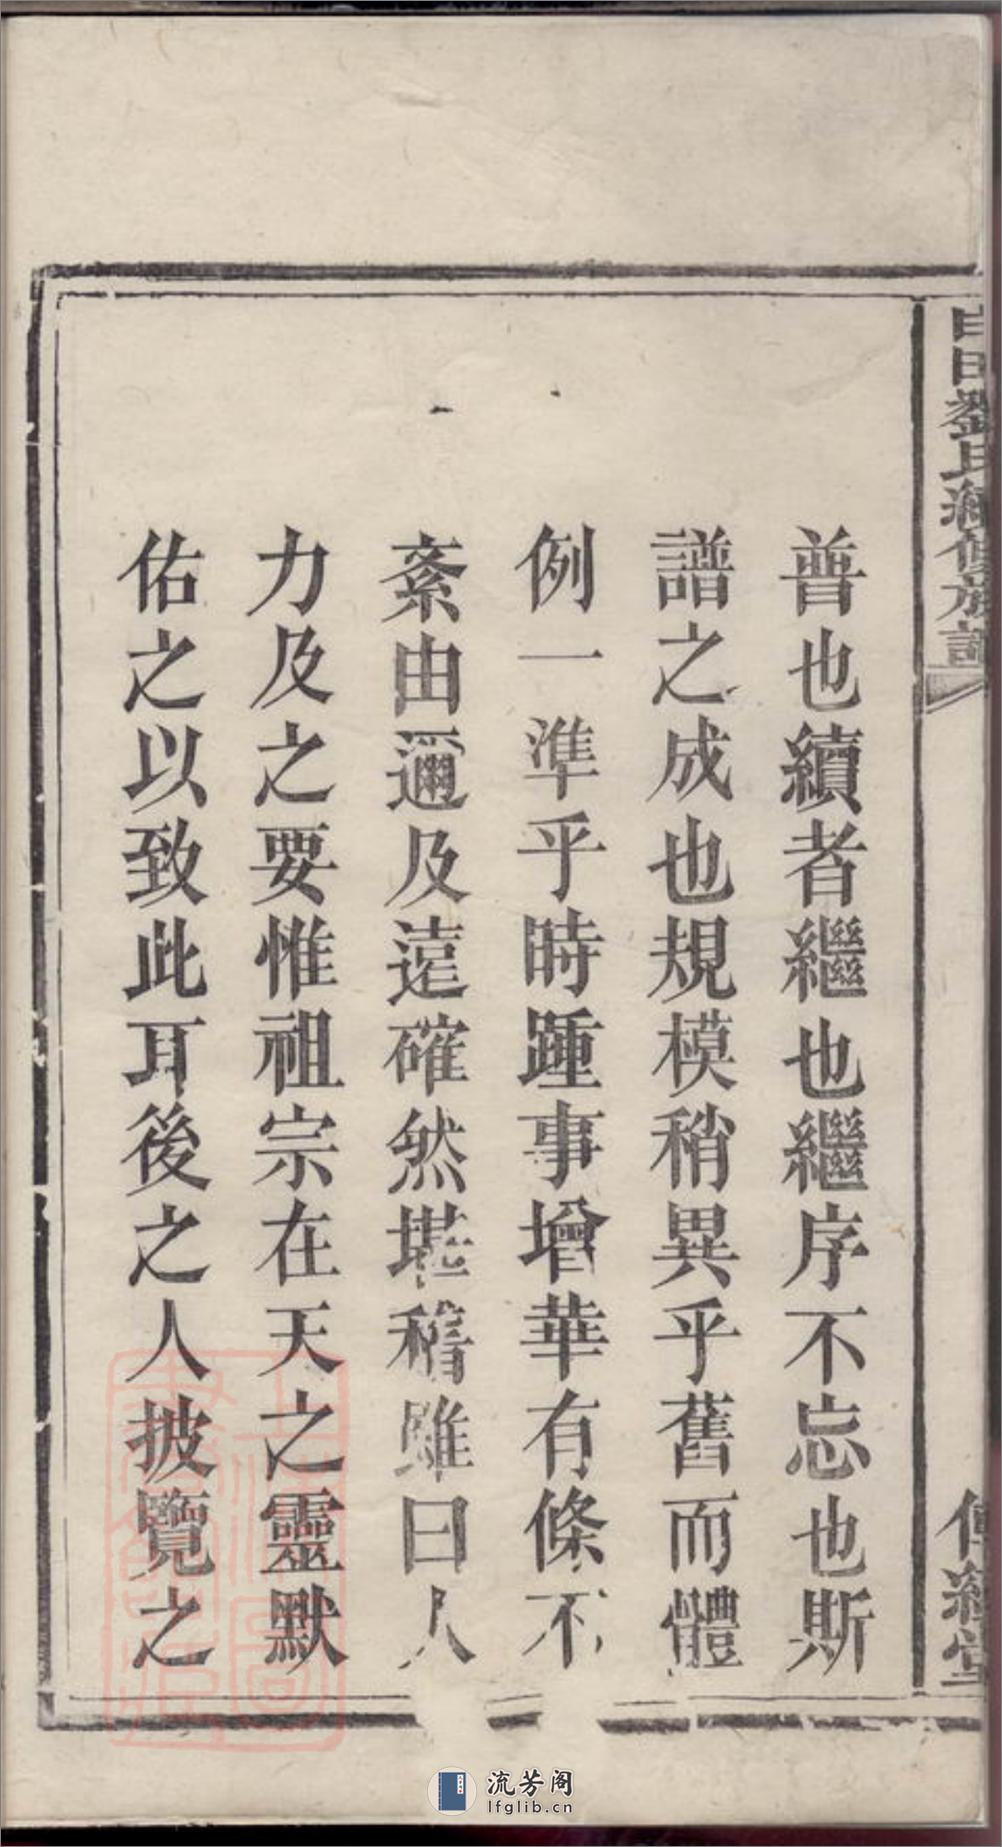 劉氏續修族譜
傳經堂
普也續者繼也繼序不忘也斯
譜之成也規模稍異乎舊而體
例一準乎時踵事增華有條不
紊由邇及遠確然堪稽雖曰人
力及之要惟祖宗在天之靈默
佑之以致此耳後之人披覽之
上海圖書館藏
流芳阁
lfglib.cn